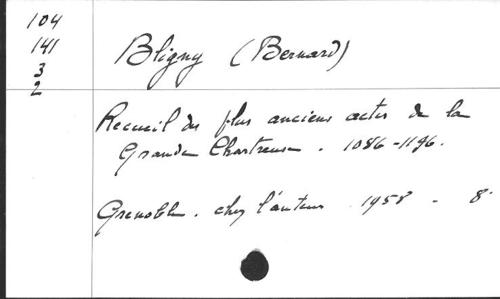 104
141
3
2
Bligny (Bernard)
Recueil des plus anciens actes de la
Grande Chartreuse. 1086-1196.
Grenoble. chez l'auteur 1958 - 8°